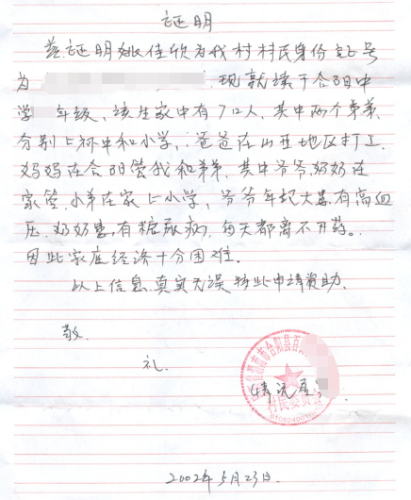 证明
兹证明姚佳欣为我村村民身份证号
为 现就读于合阳中
学 年级,该生家中有7口人,其中两个弟弟,
分别上初中和小学,爸爸在山西地区打工,
妈妈在合阳管我和弟弟,其中爷爷奶奶在
家管小弟在家上小学,爷爷年纪大且有高血
压,奶奶患有糖尿病,每天都离不开药。
因此家庭经济十分困难。
以上信息真实无误特此申请资助。
敬
礼
合阳县百
情况属
村民委员会
2002年5月23日